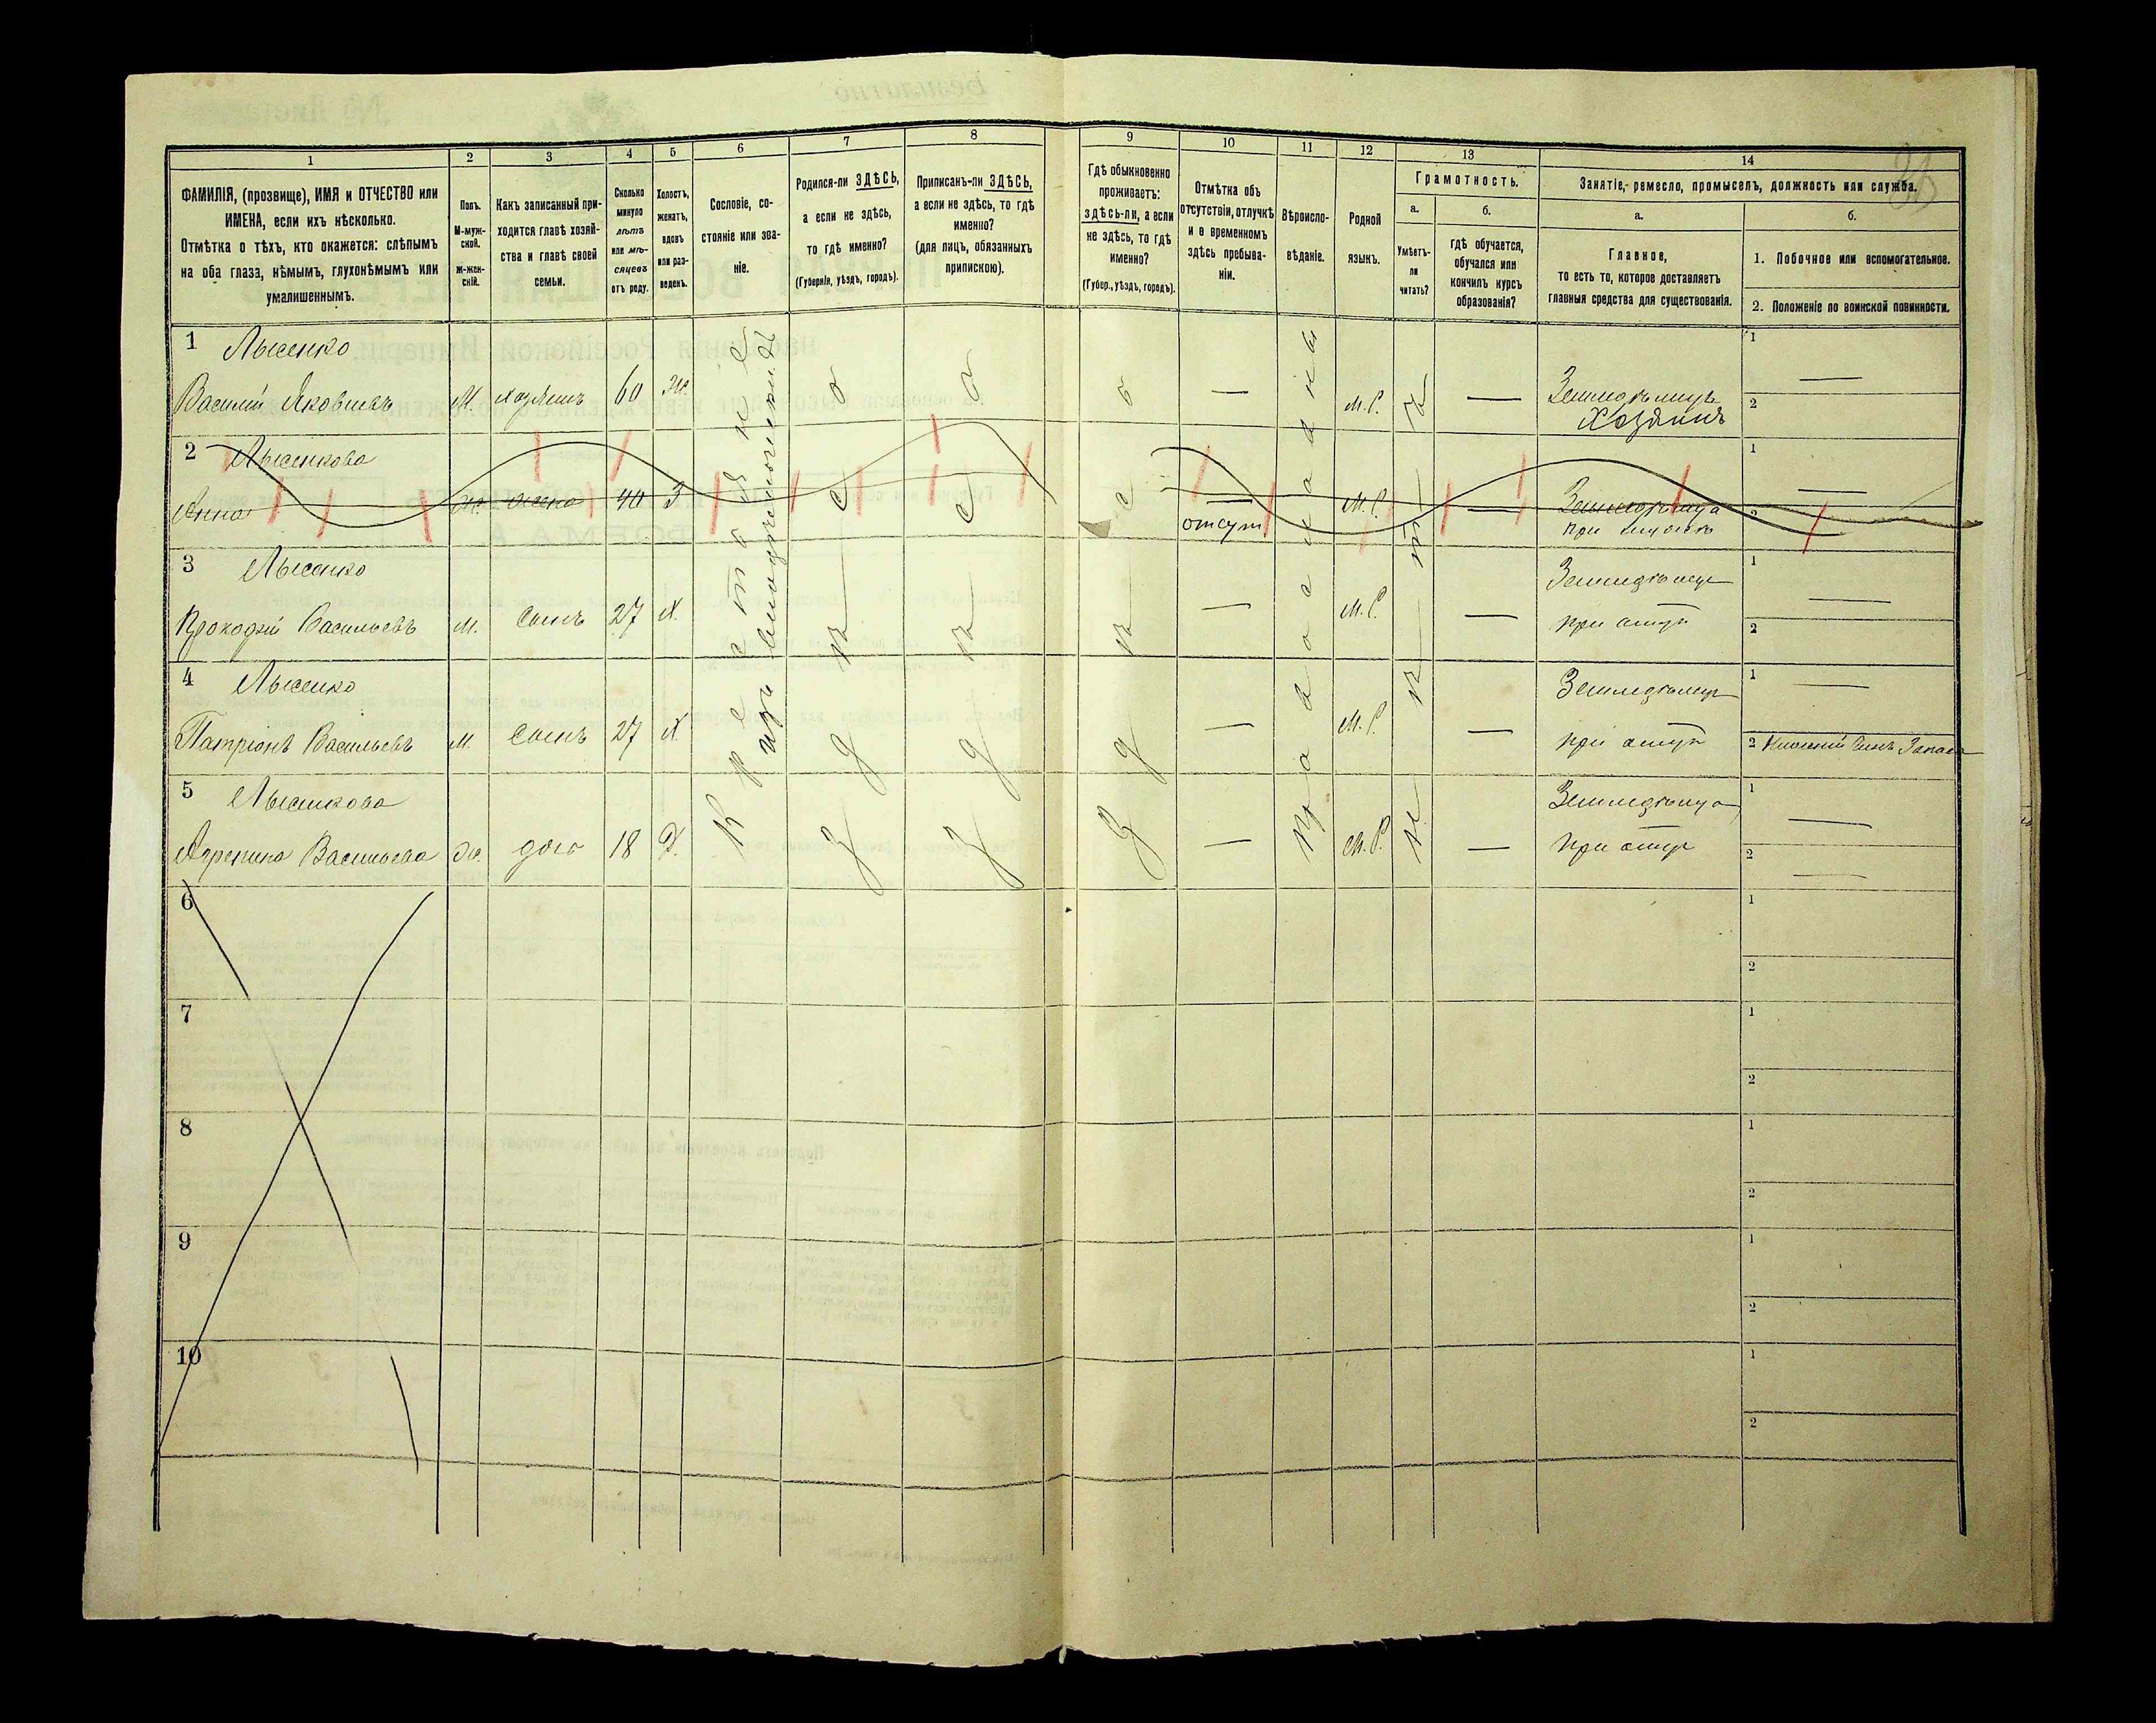 1
2
3
4
5
6
7
8
9
10
11
12
13
14
ФАМИЛІЯ, (прозвище), ИМЯ и ОТЧЕСТВО или
ИМЕНА, если ихъ нѣсколько.
Отмѣтка о тѣхъ, кто окажется: слѣпымъ
на оба глаза, нѣмымъ, глухонѣмымъ или
умалишеннымъ.
Полъ.
М-муж-
ской.
ж-жен-
скій.
Какъ записанный при-
ходится главѣ хозяй-
ства и главѣ своей
семьи.
Сколько
минуло
лѣтъ
или мѣ-
сяцевъ
отъ роду.
Холостъ,
женатъ,
вдовъ
или раз-
веденъ.
Сословіе, со-
стояніе или зва-
ніе.
Родился-ли ЗДѢСЬ,
а если не здѣсь,
то гдѣ именно?
(Губернія, уѣздъ, городъ).
Приписанъ-ли ЗДѢСЬ,
а если не здѣсь, то гдѣ
именно?
(для лицъ, обязанныхъ
припискою).
Гдѣ обыкновенно
проживаетъ:
здѣсь-ли, а если
не здѣсь, то гдѣ
именно?
(Губер., уѣздъ, городъ).
Отмѣтка объ
отсутствіи, отлучкѣ
и о временномъ
здѣсь пребыва-
ніи.
Вѣроиспо-
вѣданіе.
Родной
языкъ.
Грамотность.
а.
Умѣетъ-
ли
читать?
б.
гдѣ обучается,
обучался или
кончилъ курсъ
образованія?
Занятіе, ремесло, промыселъ, должность или служба.
а.
Главное,
то есть то, которое доставляетъ
главныя средства для существованія.
б.
1. Побочное или вспомогательное.
2. Положеніе по воинской повинности.
1 Лысенко
Василій Яковлевъ М. хозяинъ 60 — М.Р. — Земледѣлецъ
Хозяинъ
1
2
2 Лысенкова
Анна ж. жена 40 З — М.Р. —
отсут при
1
2
3 Лысенко
Прокофій Васильевъ М. сынъ 27 Х. — М.Р. — Земледѣлецъ
при отцѣ
1
2
4 Лысенко
Васильевъ М. сынъ 27 Х — М.Р. — Земледѣлецъ
при отцѣ
1
2 Нижній Чинъ Запаса
5 Лысенкова
Васильева Ж. дочь 18 Д. — М.Р. — при отцѣ
1
2
Крестьяне
изъ
Здѣсь
Здѣсь
Здѣсь
Православный
6
1
2
7
1
2
8
1
2
9
1
2
10
1
2